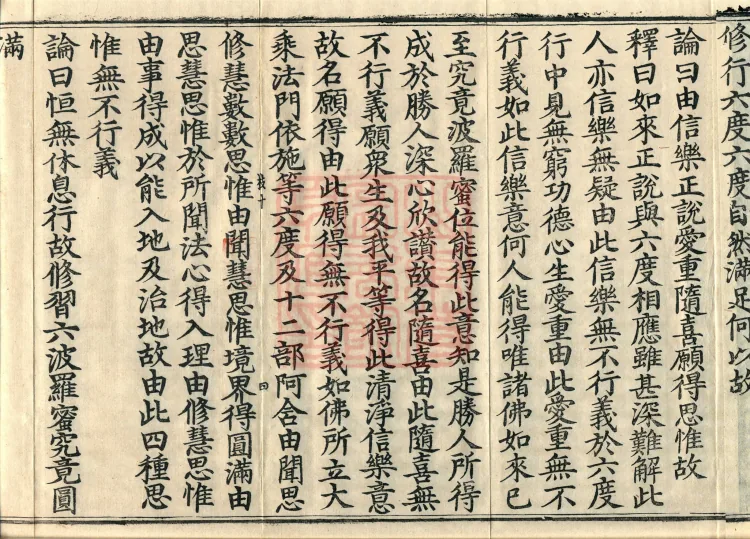 修行六度六度自然滿足何以故
論曰由信樂正說愛重隨喜願得思惟故
釋曰如來正說與六度相應雖甚深難解此
人亦信樂無疑由此信樂無不行義於六度
行中見無窮功德心生愛重由此愛重無不
行義如此信樂意何人能得唯諸佛如來已
至究竟波羅蜜位能得此意知是勝人所得
成於勝人深心欣讚故名隨喜由此隨喜無
不行義願衆生及我平等得此清淨信樂意
故名願得由此願得無不行義如佛所立大
乘法門依施等六度及十二部阿含由聞思
修慧數數思惟由聞慧思惟境界得圓滿由
思慧思惟於所聞法心得入理由修慧思惟
由事得成以能入地及治地故由此四種思
惟無不行義
論曰恒無休息行故修習六波羅蜜究竟圓
滿